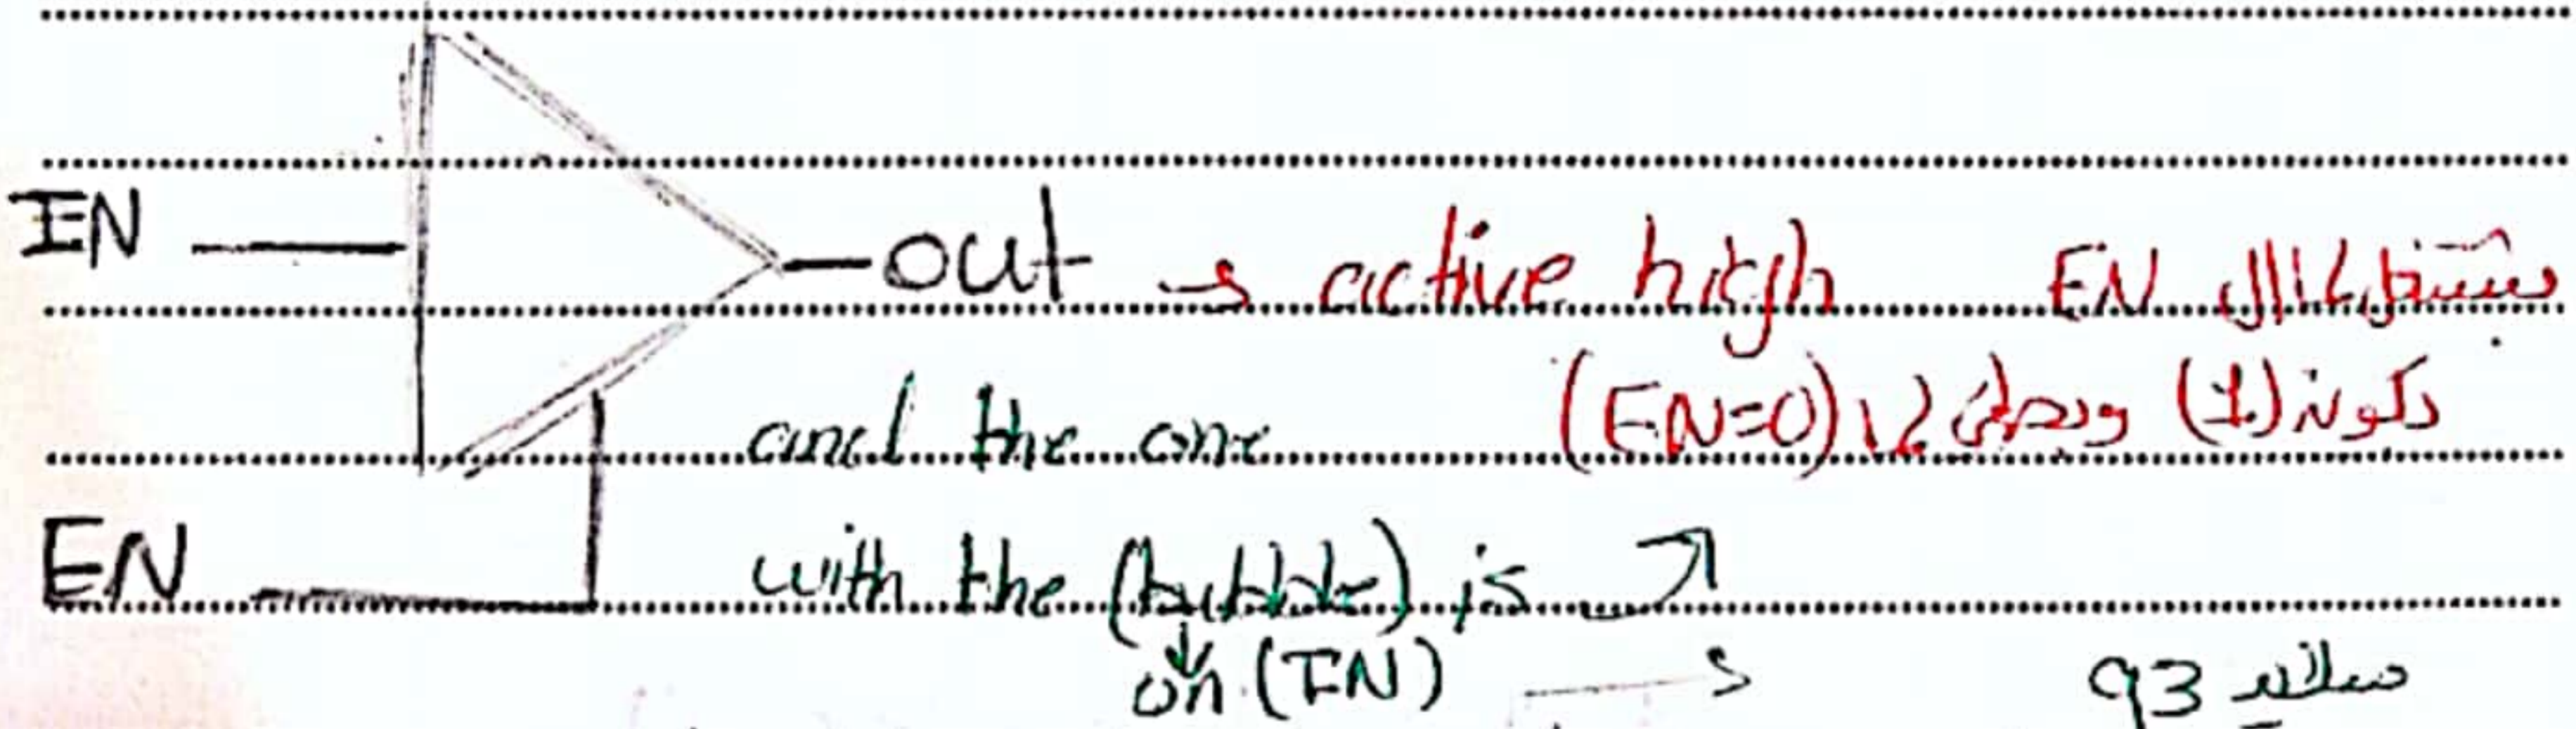 IN out → active high EN يشتغل لما ال
(EN=0) يكون (1) ويطفي لما
and the one
EN with the (bubble) is ↗
↓
on (IN) →
سلايد 93